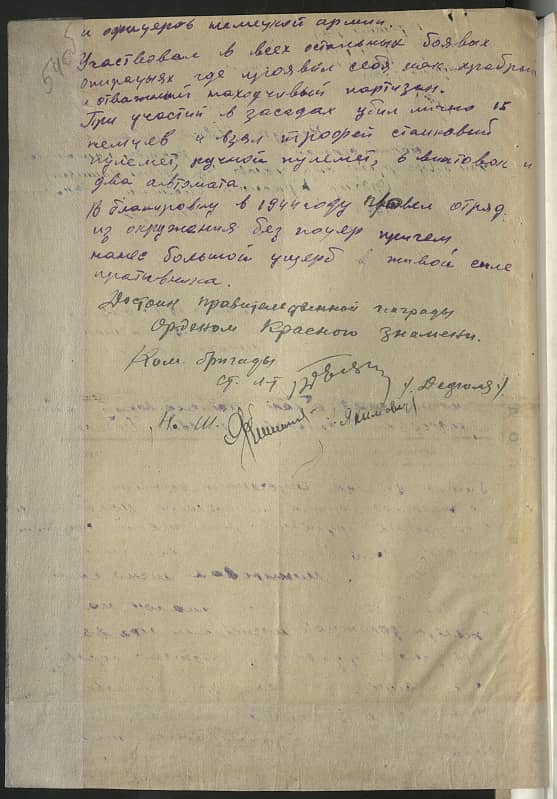 540
и офицеров немецкой армии.
Участвовал в всех остальных боевых
операцыях где проявил себя как храбрый
и отважный находчивый партизан.
При участий в засадах убил лично 15
немцев и взял трофей станковый
пулемет, ручной пулемет, 6 винтовок и
два автомата.
В бланировку в 1944 году провел отряд
из окружения без потер причем
нанес большой ущерб в живой силе
противника.
Достоин правителественной награды
Орденом Красного знамени.
Ком. бригады
ст. л-т /Дедюля/
Н. Ш. /Якимович/